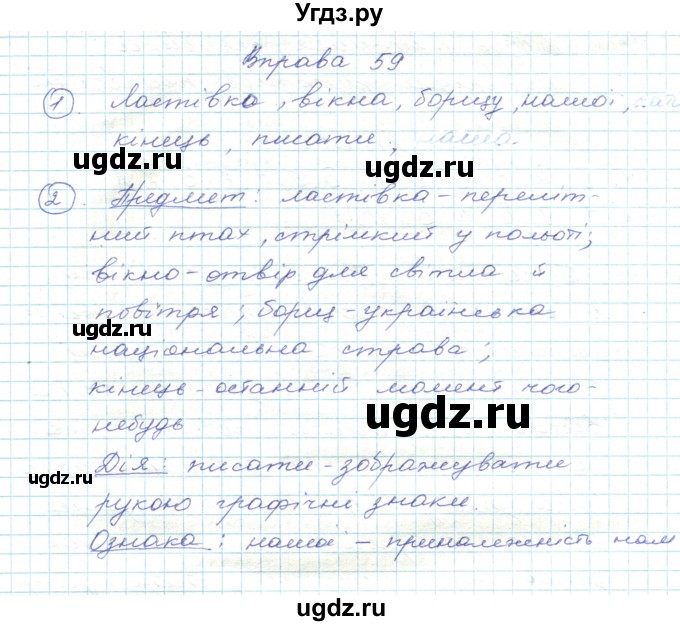 Угдз.ру
Вправа 59
1. Ластівка, вікна, борщу, нашої,
кінець, писати,
ugdz.ru ugdz.ru
2. Предмет: ластівка – переліт-
ний птах, стрімкий у польоті;
вікно – отвір для світла й
повітря; борщ – українська
ugdz.ru ugdz.ru
національна страва;
кінець – останній момент чого-
ugdz.ru
небудь
Дія: писати – зображувати
ugdz.ru
рукою графічні знаки.
ugdz.ru
Ознака: нашої – приналежність нам
ugdz.ru